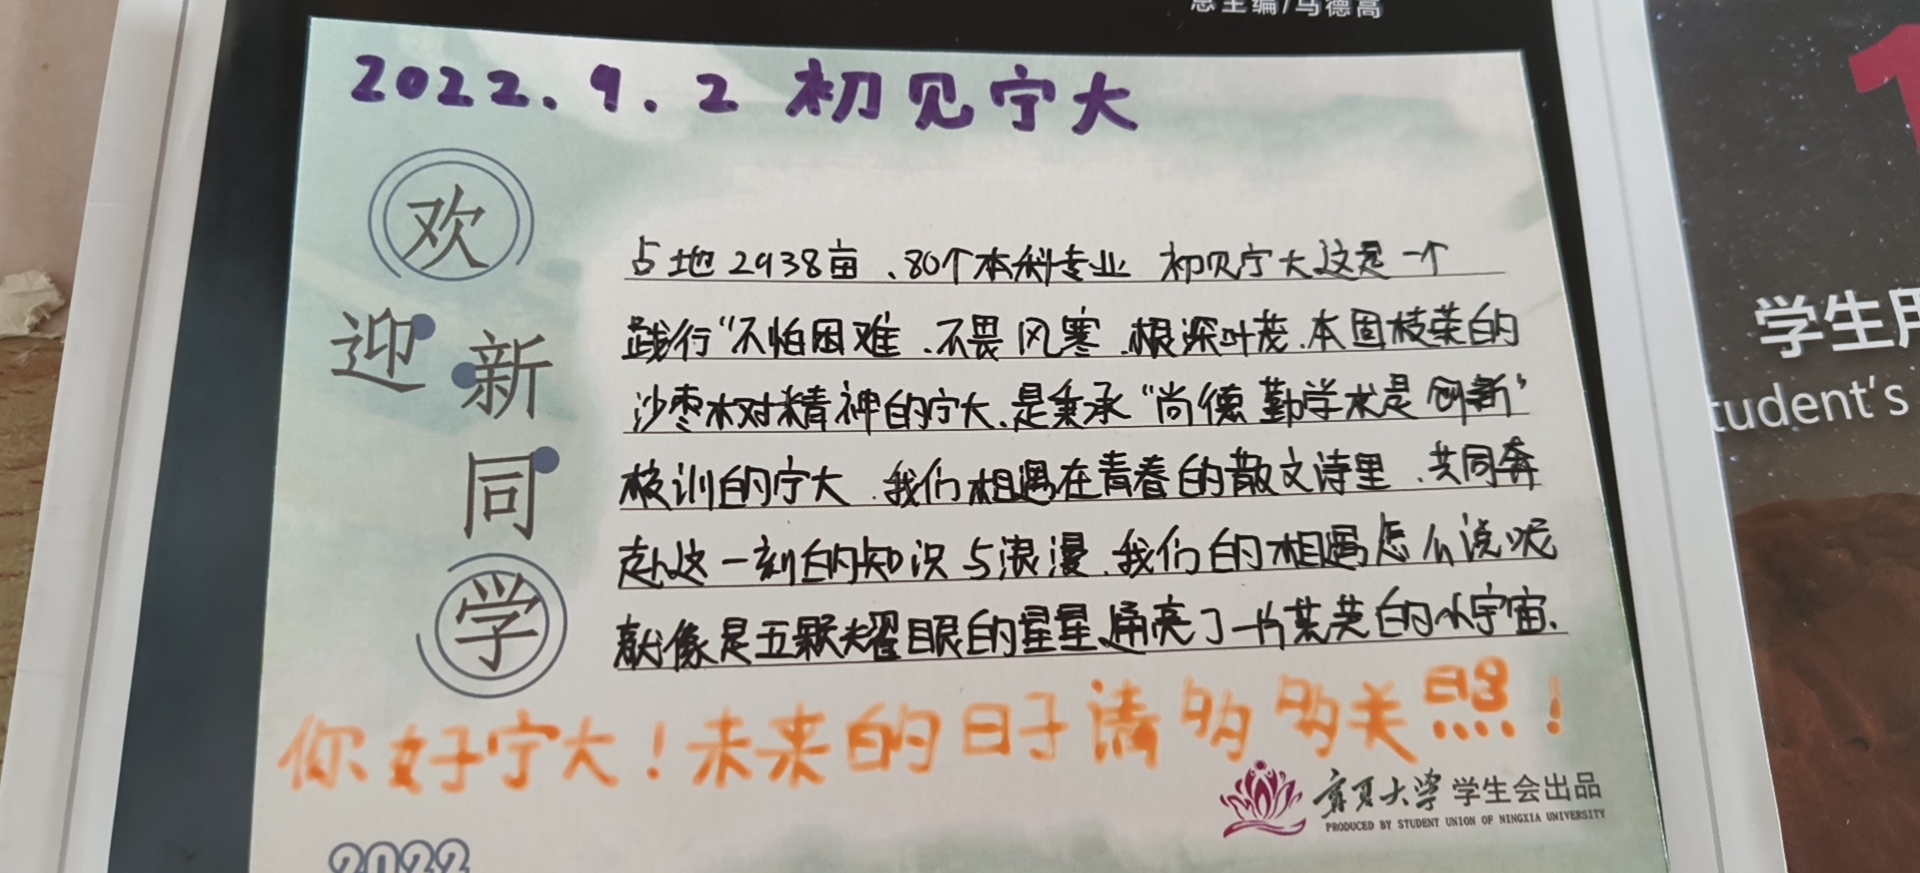 总主编/马德高
2022.9.2 初见宁大
欢迎新同学
占地2938亩、80个本科专业 初见宁大这是一个
践行“不怕困难、不畏风寒、根深叶茂、本固枝荣的
沙枣树精神的宁大、是秉承“尚德勤学求是创新”
校训的宁大、我们相遇在青春的散文诗里、共同奔
赴这一刻的知识与浪漫、我们的相遇怎么说呢
就像是五颗耀眼的星星、点亮了一片荧荧的小宇宙、
你好宁大!未来的日子请多多关照!
宁夏大学 学生会出品
PRODUCED BY STUDENT UNION OF NINGXIA UNIVERSITY
2022
1
学生用
tudent's